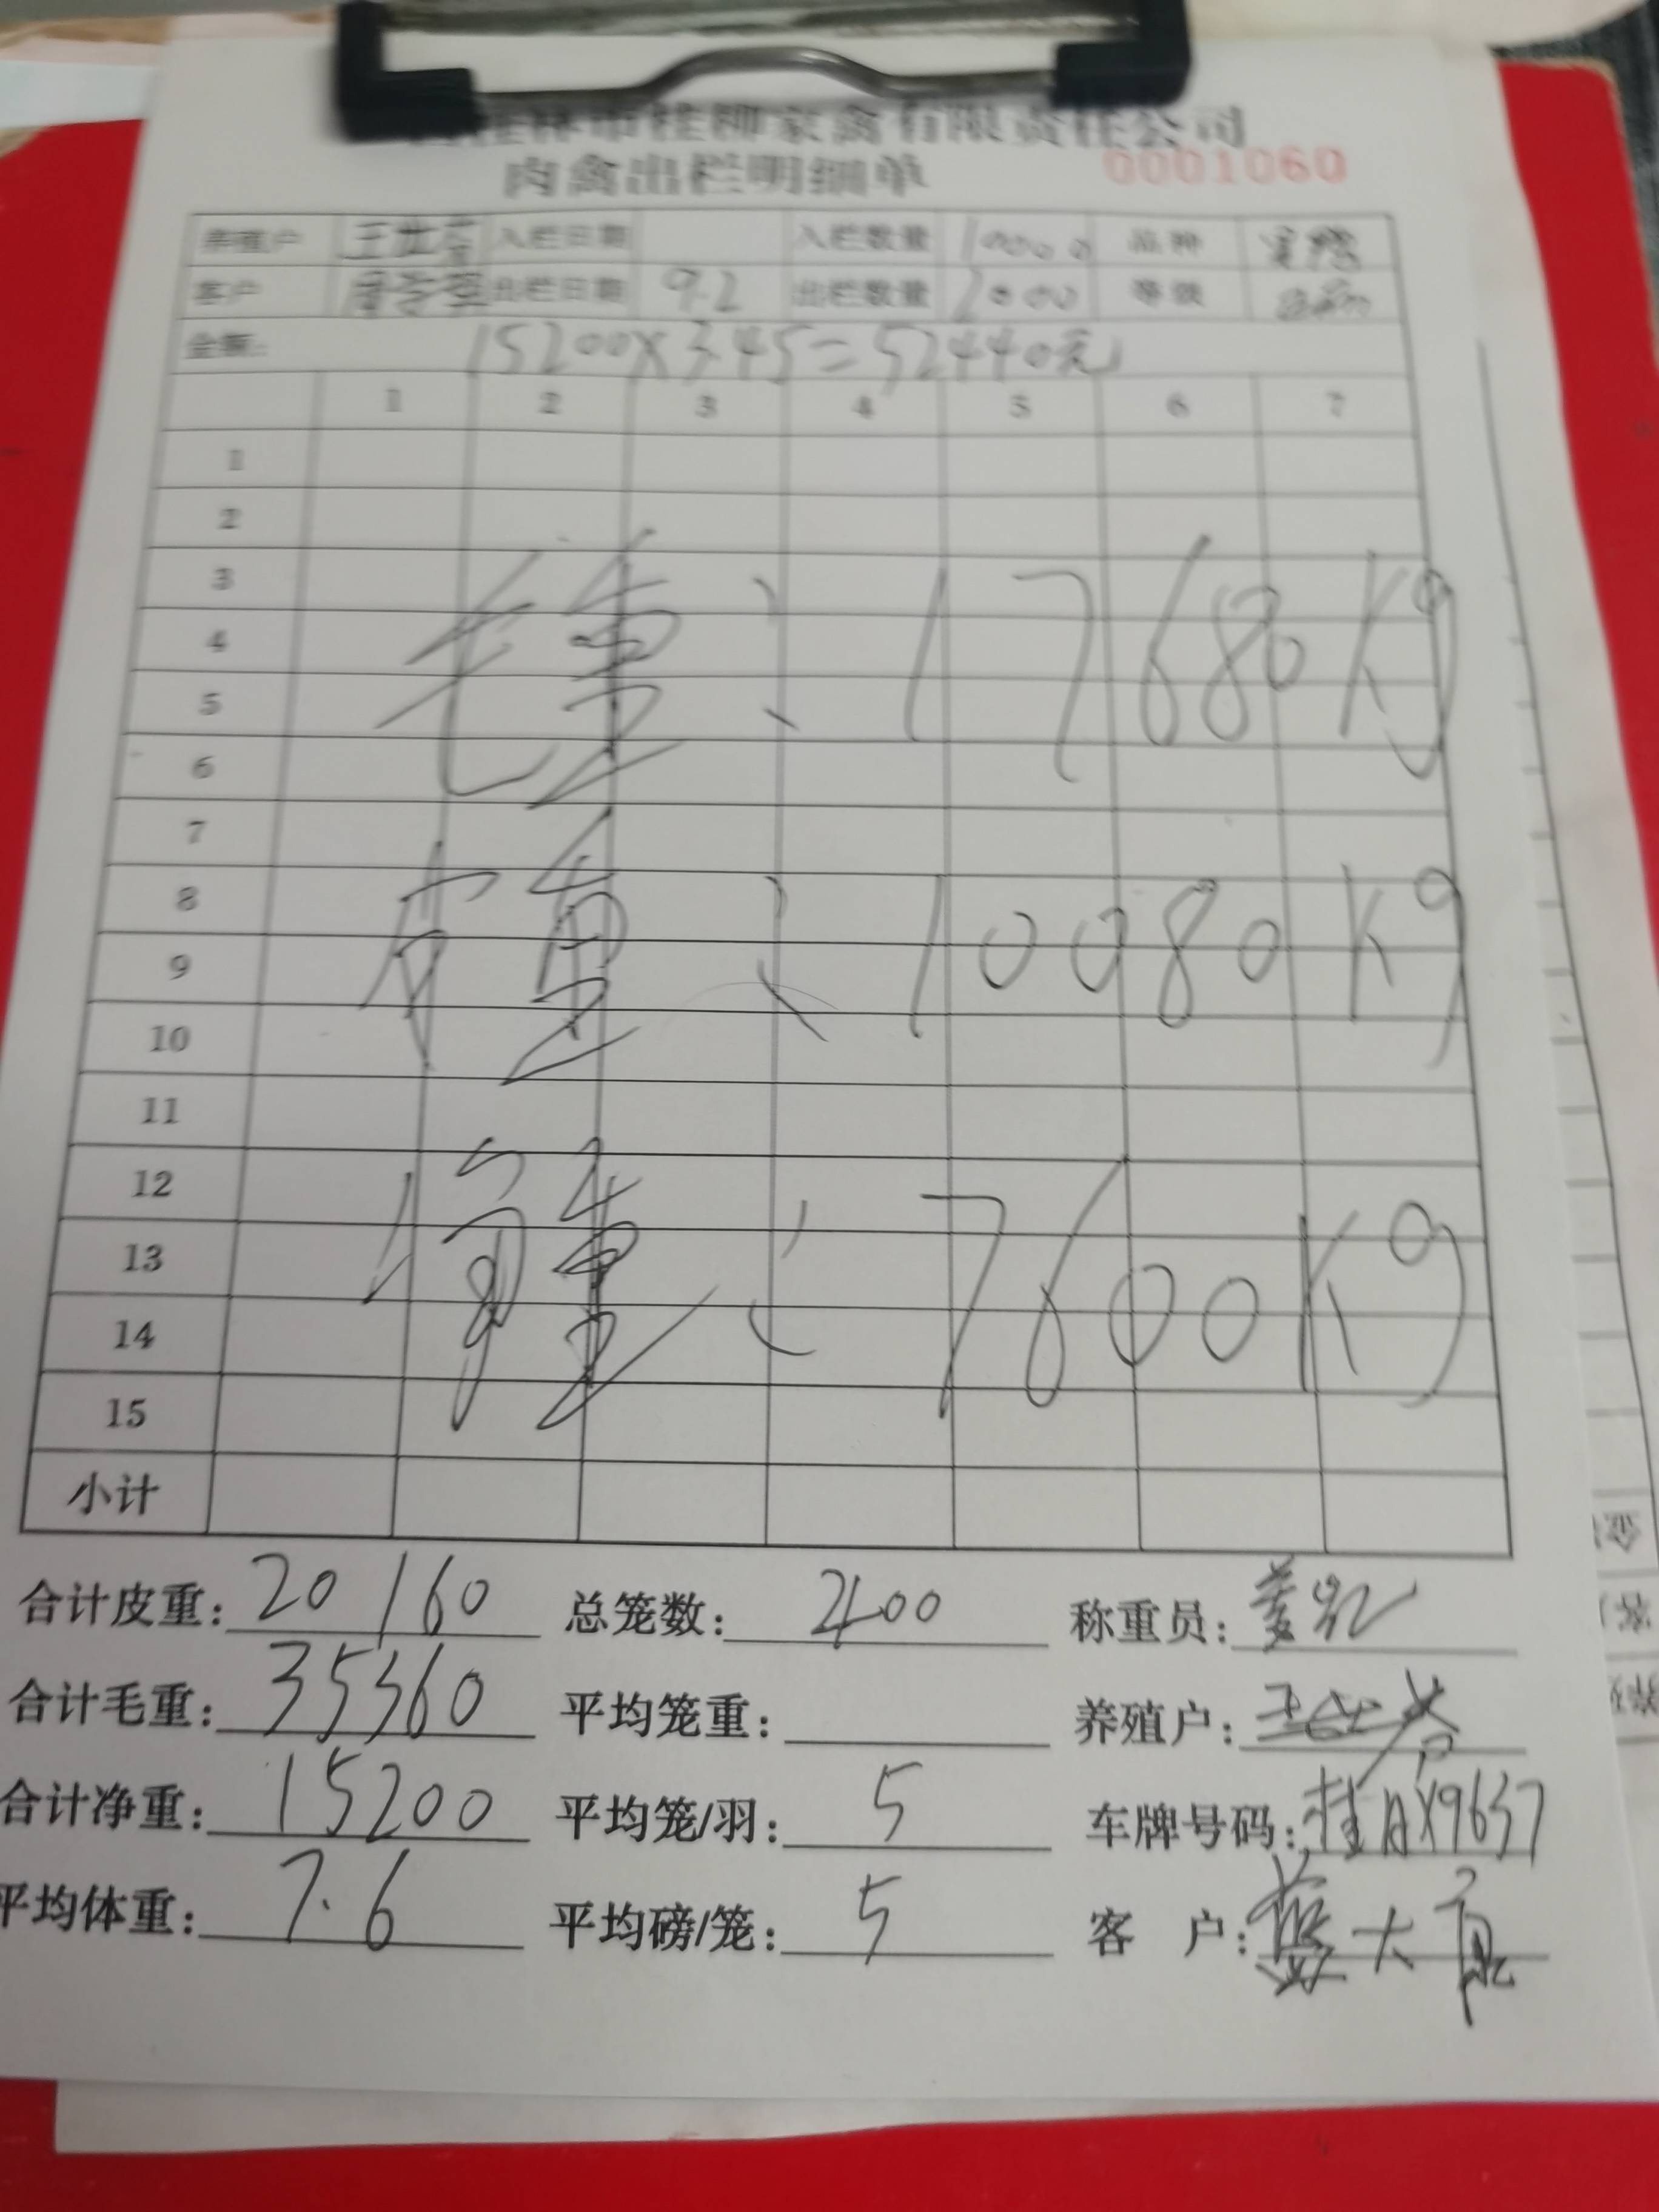 桂林市桂柳家禽有限责任公司
肉禽出栏明细单 0001060
养殖户 王世 入栏日期 入栏数量 10000 品种
客户 出栏日期 9.2 出栏数量 2000 等级
金额: 15200X3.45=52440元
1 2 3 4 5 6 7
1
2
3
4
5
6
7
8
9
10
11
12
13
14
15
毛重: 17680Kg
皮重: 10080Kg
净重: 7600Kg
小计
合计皮重: 20160 总笼数: 2400 称重员:
合计毛重: 35360 平均笼重: 养殖户: 王世
合计净重: 15200 平均笼/羽: 5 车牌号码: 桂AX9637
平均体重: 7.6 平均磅/笼: 5 客户: 大